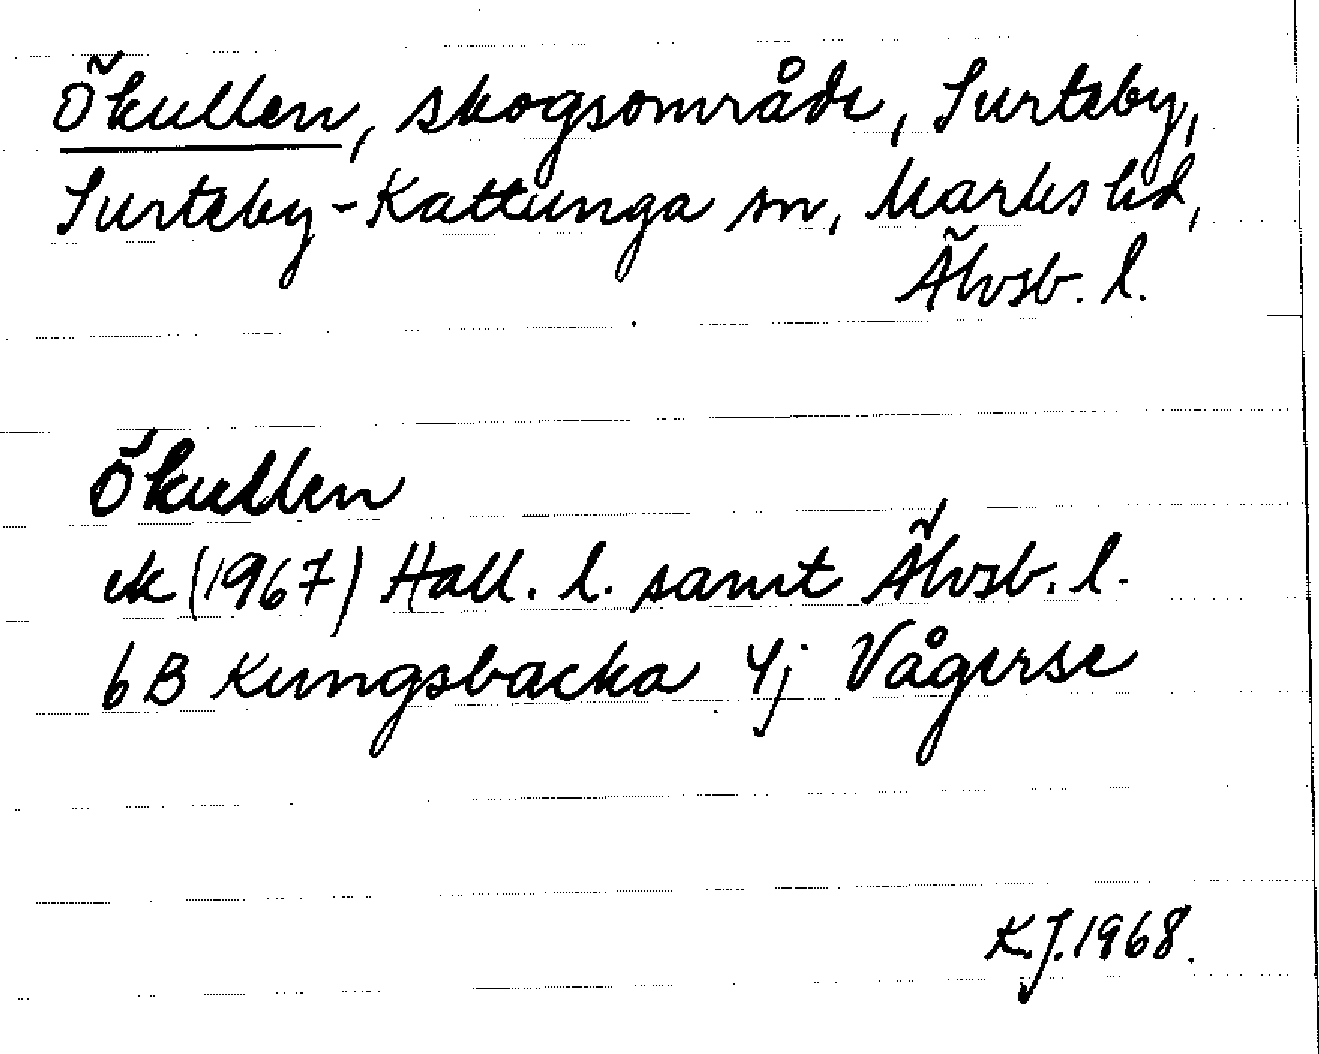 Ökullen, skogsområde, Surteby,
Surteby-Kattunga sn, Marks hd,
Älvsb. l.
Ökullen
ek (1967) Hall. l. samt Älvsb. l.
6B Kungsbacka 4j Vågerse
K.J. 1968.